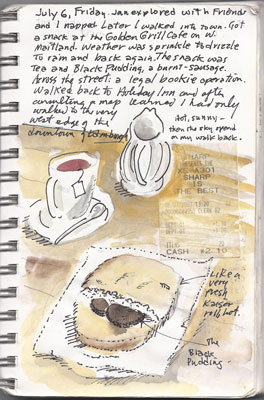 July 6, Friday. Jan explored with Friends
and I napped. Later I walked into town. Got
a snack at the Golden Grill Cafe on W.
Maitland. Weather was sprinkle to drizzle
To rain and back again. The snack was
Tea and Black Pudding, a burnt-sausage.
Across the street: a legal bookie operation.
Walked back to Holiday Inn and after
consulting a map learned I had only
walked to the very
west edge of the
downtown of Edinburgh
Hot, sunny -
then the sky opened
on my walk back.
SHARP
XE-A301
SHARP
IS
THE BEST
CASH £2.10
Like a
very
fresh
Kaiser
roll, hot.
The
Black
Pudding.